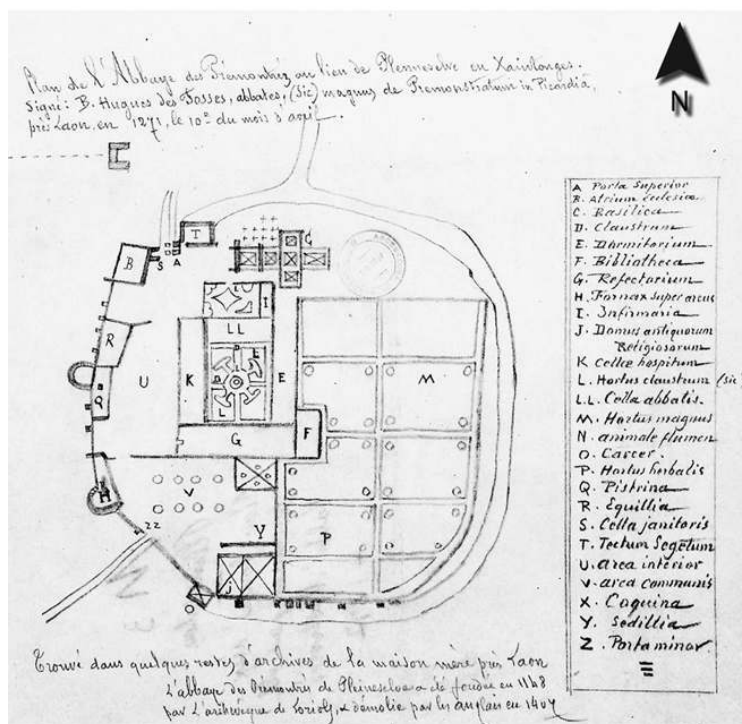 Plan de l'Abbaye des Prémontrez au lieu de Plenneselve en Xaintonges.
Signé: B. Hugues des Fosses, abbates, (sic) magnus de Premonstratum in Picardiâ,
près Laon, en 1271, le 10e du mois d'avril.
N
A Porta Superior
B. Atrium Ecclesiæ
C. Basilica
D. Claustrum
E. Dormitorium
F. Bibliotheca
G. Refectorium
H. Fornax super arcus
I. Infirmaria
J. Domus antiquorum
Religiosorum
K Cellæ hospitum
L. Hortus claustrum (sic)
LL. Cella abbatis.
M. Hortus magnus
N. animale flumen
O. Carcer.
P. Hortus herbalis
Q. Pistrina
R. Equillia
S. Cella janitoris
T. Tectum Segetum
U. area interior
V. area communis
X. Coquina
Y. Sedillia
Z. Porta minor
T
C
S
A
B
I
LL
R
L
U
K
D
E
M
Q
L
G
F
H
V
22
Y
P
J
O
Trouvé dans quelques restes d'archives de la maison mère près Laon
L'abbaye des Prémontrés de Pleineselve a été fondée en 1148
par L'archevêque de Loriol, & démolie par les anglais en 1407